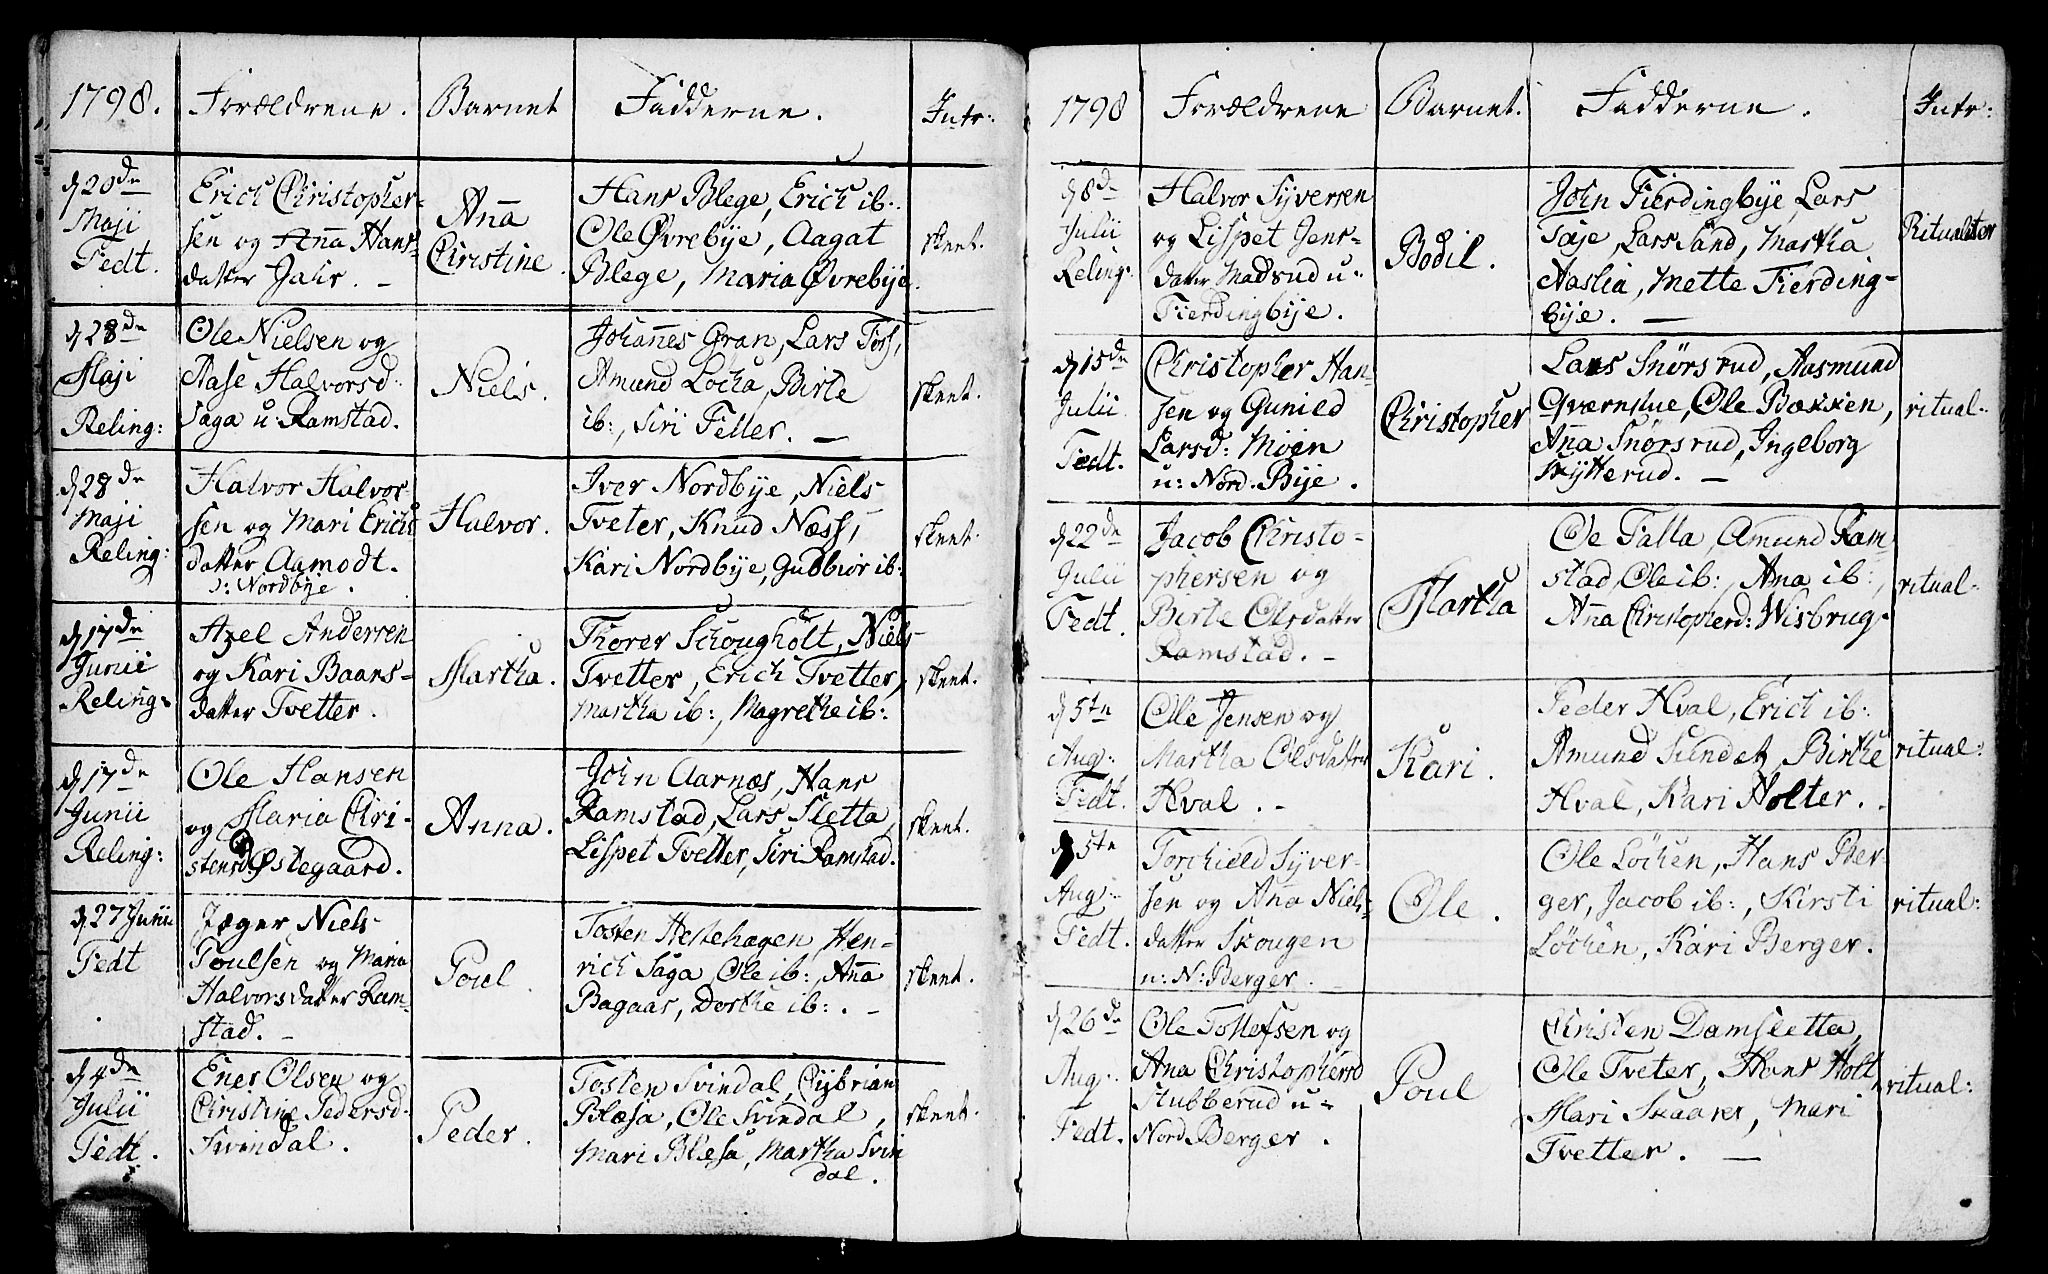 1798. Forældrene. Barnet Fadderne. Intr:
d 20de Maji Fedt.
Erich Christopher-
sen og Anna Hans-
datter Jahr. -
Anna
Christine.
Hans Blege, Erich ib:
Ole Øvrebÿe, Aagat
Blege, Maria Øvrebÿe.
skeet.
d 28de
Maji
Reling:
Ole Nielsen og
Aase Halvorsd:
Saga u: Ramstad.
Niels.
Johannes Gran, Lars Foss,
Amund Locha, Birte
ib:, Siri Feller. -
skeet.
d 28de
Maji
Reling:
Halvor Halvor-
sen og Mari Erichs
datter Aamodt.
u: Nordbÿe.
Halvor.
Iver Nordbÿe, Niels
Tveter, Knud Næss,
Kari Nordbÿe, Gubbiør ib:
skeet.
d 17de
Junii
Reling:
Axel Andersen
og Kari Baars-
datter Tvetter.
Martha.
Thorer Schougholt, Niels
Tvetter, Erich Tvetter,
Martha ib:, Magrethe ib:
skeet.
d 17de
Junii
Reling:
Ole Hansen
og Maria Chri-
stensd: Østegaard.
Anna.
John Aarnæs, Hans
Ramstad, Lars Sletta,
Lispet Tvetter, Siri Ramstad.
skeet.
d 27 Junii
Fedt
Jæger Niels
Poulsen og Maria
Halvorsdatter Ram-
stad. -
Poul.
Tosten Hestehagen, Hen-
rich Saga, Ole ib:, Anna
Bagaas, Dorthe ib:. -
skeet.
d 4de
Julii
Fedt.
Ener Olsen og
Christine Pedersd:
Svindal.
Peder.
Tosten Svindal, Cÿbrian
Blæsa, Ole Svindal,
Mari Blæsa, Martha Svin
dal.
skeet.
1798 Forældrene Barnet. Fadderne. Intr:
d 8de
Julii
Reling:
Halvor Sÿversen
og Lispet Jens-
datter Madsrud u:
Fierdingbÿe.
Bodil.
John Fierdingbÿe, Lars
Tøje, Lars Sand, Martha
Aaslia, Mette Fierding-
bÿe. -
Ritualiter
d 15de
Julii
Fedt.
Christopher Han-
sen og Gunild
Larsd: Moen
u: Nord-Bÿe.
Christopher
Lars Snørsrud, Aasmund
Qværnstue, Ole Bakken,
Anna Snørsrud, Ingeborg
Skÿtterud. -
ritual:
d 22de
Julii
Fedt.
Jacob Christo-
phersen og
Birte Olsdatter
Ramstad. -
Martha
Ole Falla, Amund Ram
stad, Ole ib:, Ana ib:,
Anna Christopherd: Wisbrug.
ritual:
d 5te
Aug:
Fedt.
Ole Jensen og
Martha Olsdatter
Hval. -
Kari.
Peder Hval, Erich ib:
Amund Sundet, Birthe
Hval, Kari Holter.
ritual:
d 5te
Aug:
Fedt.
Torchield Sÿver-
sen og Ana Niels-
datter Skougen
u: N: Berger.
Ole.
Ole Løchen, Hans Ber
ger, Jacob ib:, Kirsti
Løchen, Kari Berger.
ritual:
d 26de
Aug:
Fedt.
Ole Tollefsen og
Ana Christophersd
Stubberud u:
Nord Berger.
Poul
Christen Damsletta,
Ole Tveter, Hans Holt
Mari Skaarer, Mari
Tvetter. -
ritual: